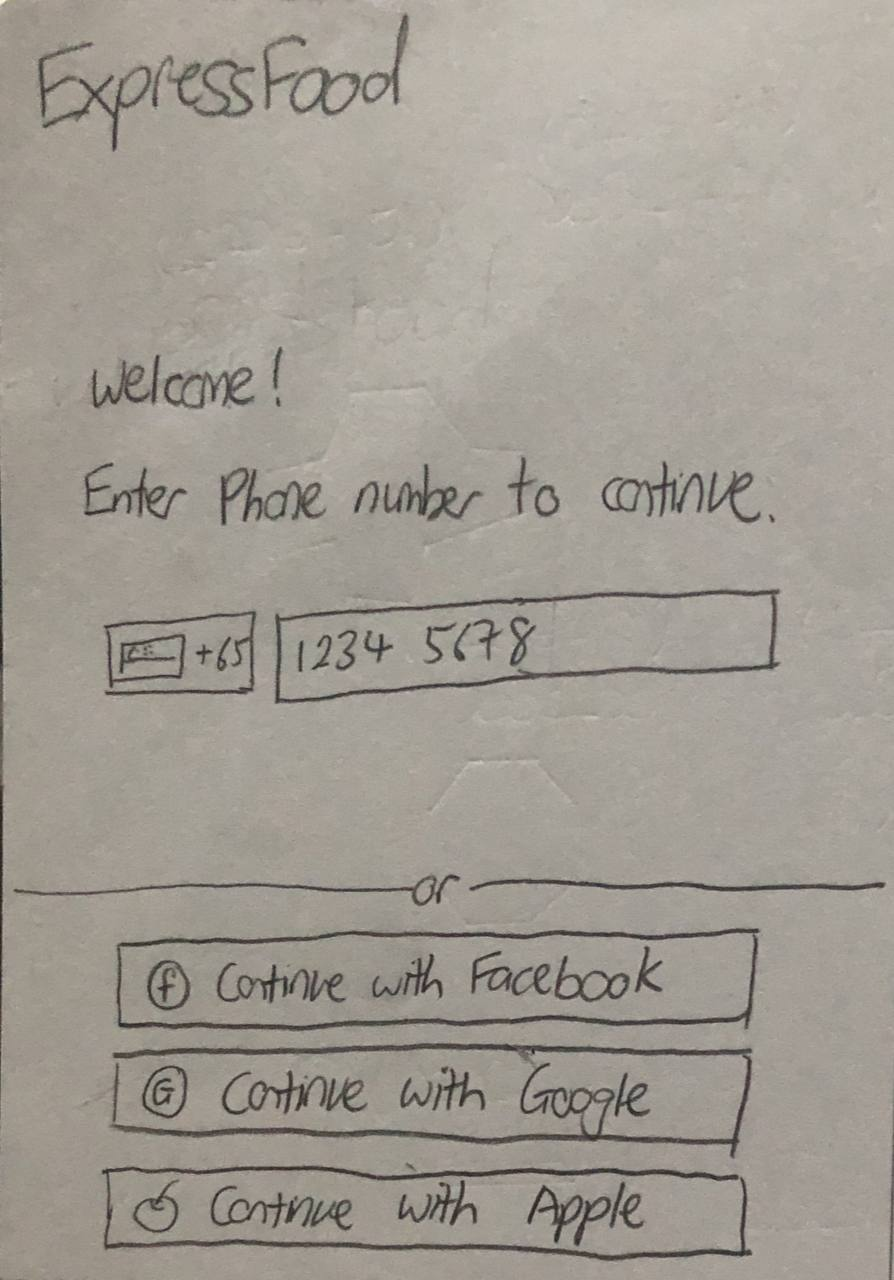 ExpressFood
Welcome!
Enter Phone number to continue.
+65 1234 5678
or
f Continue with Facebook
G Continue with Google
Continue with Apple